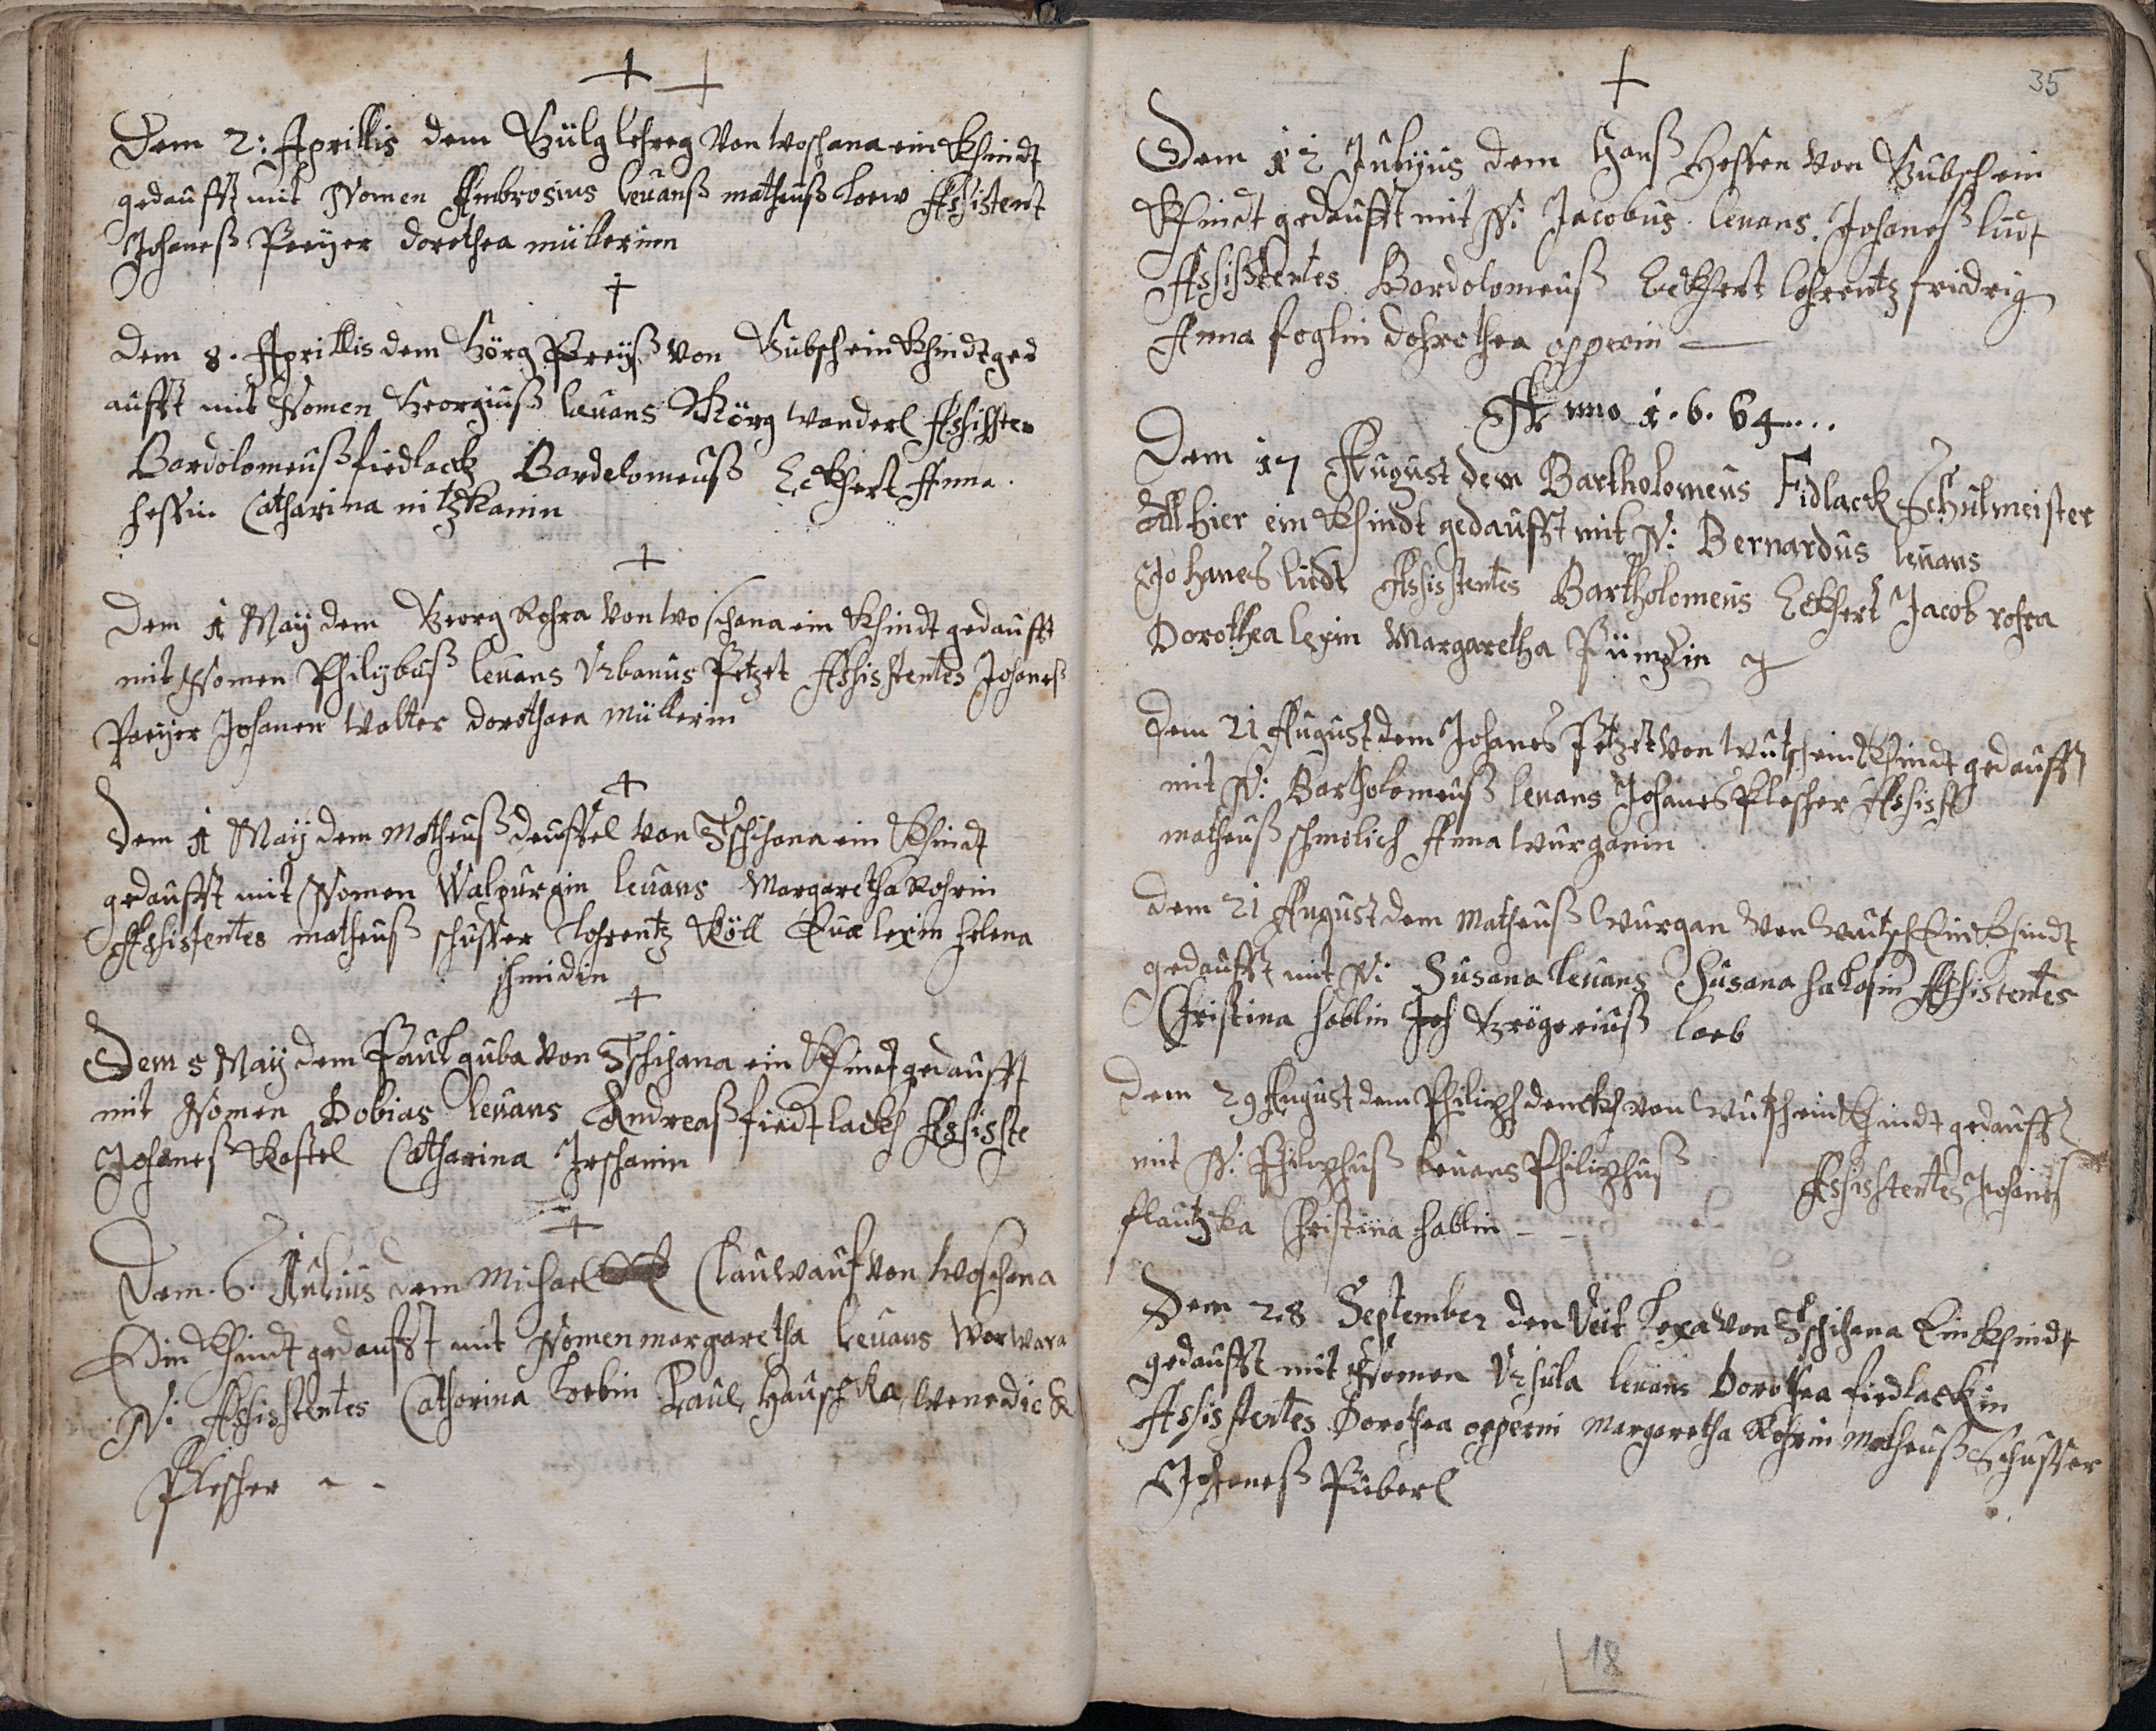 Dem 2: Aprillis dem Gülg lehreg von woschana ein Khindt
gedaufft mit Nomen Ambrosius levanß matheuß loew Assistent
Johaneß Preÿer dorethea müllerinn
dem 8. Aprillis dem Görg Preÿß von Gubsch ein Khindt ged
aufft mit Nomen Georgiuß levans Görg wanderl Assisten
Bardolomeuß fiedlackh Bardelomeuß Eckhert Anna
hessin Catharina nitzkanin
Dem 1 Maÿ dem Georg Rohra von woschana ein Khindt gedaufft
mit Nomen Philÿbuß levans Urbanus Petzet Assistentes Johaneß
Preÿer Johanen wolter dorothaea müllerin
Dem 1 Maÿ dem Matheuß deuffel von Tschihana ein Khindt
gedaufft mit Nomen Walpurgin levans Margaretha Rohrin
Assistentes matheuß schusser lohrentz Köll Eva lexin helena
schmidin
Dem 5 Maÿ dem Paul guba von Tschihana ein Khindt gedaufft
mit Nomen Dobias levans Andreaß fiedtlackh Assiste
Johaneß Kastel Catharina Irschanin
Dem 6. Julius dem Michael Clauwauf von woschana
Ein Khindt gedaufft mit Nomen margaretha levans Warwara
N: Assistentes Catharina Loebin Paul Hauschka, Wenedick
Plescher
35
Dem 12 Julÿus dem Hanß Hessen von Gubsch ein
Khindt gedaufft mit N: Jacobus levans. Johaneß ludt
Assisstentes Bardolomeuß Eckhert lohrentz fridrig
Anna foglin dohrothea opperin
Anno 1.6.64....
Dem 17 August dem Bartholomeus Fidlack Schulmeister
Allhier ein Khindt gedaufft mit N: Bernardus levans
Johanes ludt Assistentes Bartholomeus Eckhert Jacob rohra
Dorothea lexin Margaretha
Dem 21 August dem Johanes Petzet von wutsch ein Khindt gedaufft
mit N: Bartholomeuß levans Johanes Plescher Assist
matheuß schmelich Anna Wurganin
dem 21 August dem Matheuß Wurgan von Wutsch Ein Khindt
gedaufft mit N: Susana levans Susana halosin Assistentes
Christina hablin Grögeriuß loeb
Dem 29 August dem Philiph denckh von Wutsch ein Khindt gedaufft
mit N: Philiphuß levans Philiphuß Assistentes Johanes
flautzka Christina hablin
Dem 28 September den Veit Lexa von Tschihana Ein Khindt
gedaufft mit Nomen Ursula levans Dorothea fiedlackin
Assistentes Dorothea opperin Margaretha Rohrin Matheuß Schusser
Johaneß Püberl
18